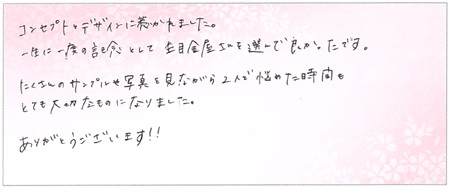 コンセプトとデザインに惹かれました。
一生に一度の記念として 杢目金屋さんを選んで良かったです。
たくさんのサンプルや写真を見ながら 2人で悩めた時間も
とても大切なものになりました。
ありがとうございます!!